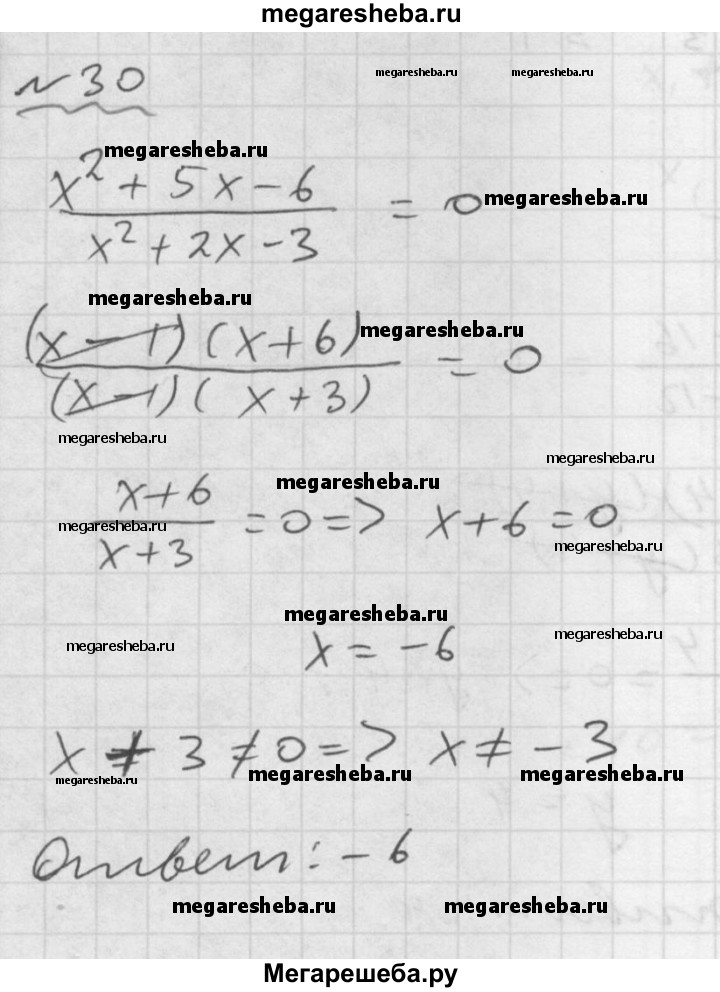 megaresheba.ru
№ 30
megaresheba.ru megaresheba.ru
megaresheba.ru
x² + 5x - 6
= 0 megaresheba.ru
x² + 2x - 3
megaresheba.ru
(x - 1) (x + 6) megaresheba.ru
= 0
(x - 1) (x + 3)
megaresheba.ru megaresheba.ru
megaresheba.ru
x + 6
megaresheba.ru = 0 => x + 6 = 0
x + 3 megaresheba.ru
megaresheba.ru
megaresheba.ru megaresheba.ru
x = - 6
x + 3 ≠ 0 => x ≠ - 3
megaresheba.ru megaresheba.ru megaresheba.ru
Ответ: - 6
megaresheba.ru megaresheba.ru
Мегарешеба.ру